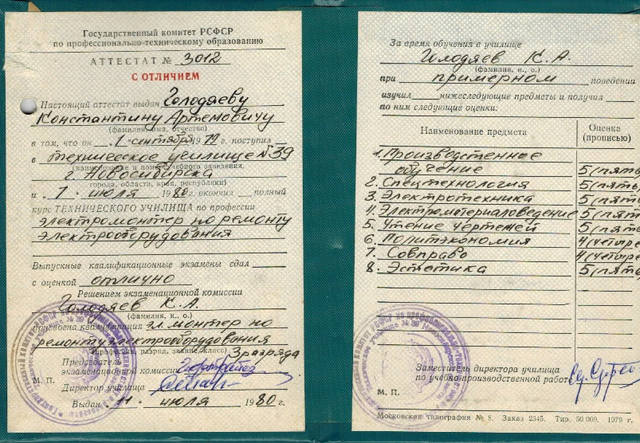 Государственный комитет РСФСР
по профессионально-техническому образованию
АТТЕСТАТ № 3012
С ОТЛИЧИЕМ
Настоящий аттестат выдан Голодяеву
Константину Артемовичу
(фамилия, имя, отчество)
в том, что он 1 сентября 1979 г. поступил
в техническое училище №39
г. Новосибирска
(города, области, края, республики)
и 1 июля 1980 г. окончил полный
курс ТЕХНИЧЕСКОГО УЧИЛИЩА по профессии
электромонтер по ремонту
электрооборудования
Выпускные квалификационные экзамены сдал
с оценкой отлично
Решением экзаменационной комиссии
Голодяев К.А.
(фамилия, и., о.)
присвоена квалификация эл.монтер по
ремонту электрооборудования
3 разряда
Председатель
экзаменационной комиссии
Директор училища
М. П.
Выдан июля 1980 г.
За время обучения в училище
Голодяев К.А.
(фамилия, и., о.)
при примерном поведении
изучил нижеследующие предметы и получил
по ним следующие оценки:
Наименование предмета Оценка
(прописью)
1. Производственное
обучение 5 (пято
2. Спецтехнология 5 (пято
3. Электротехника 5 (пято
4. Электроматериаловедение 5 (пято
5. Чтение чертежей 5 (пято
6. Политэкономия 4 (четыре
7. Совправо 4 (четыре
8. Эстетика 5 (пято
Заместитель директора училища
по учебно-производственной работе
М. П.
Московская типография № 8. Заказ 2345. Тир. 50 000. 1979 г.